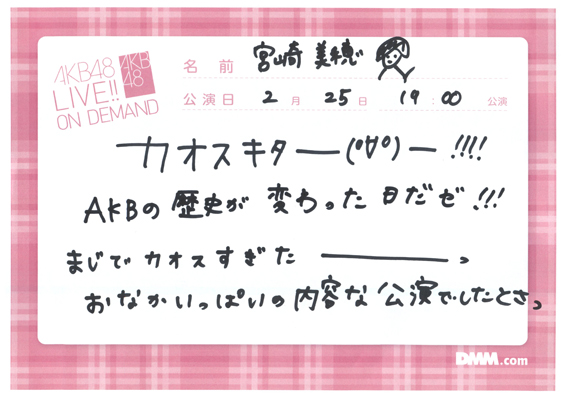 AKB48
LIVE!!
ON DEMAND
AKB
48
名前 宮崎美穂
公演日 2月 25日 19:00 公演
カオスキター(゚∀゚)ー!!!!
AKBの歴史が変わった日だぜ!!!
まじでカオスすぎたー。
おなかいっぱいの内容な公演でしたとさっ
DMM.com